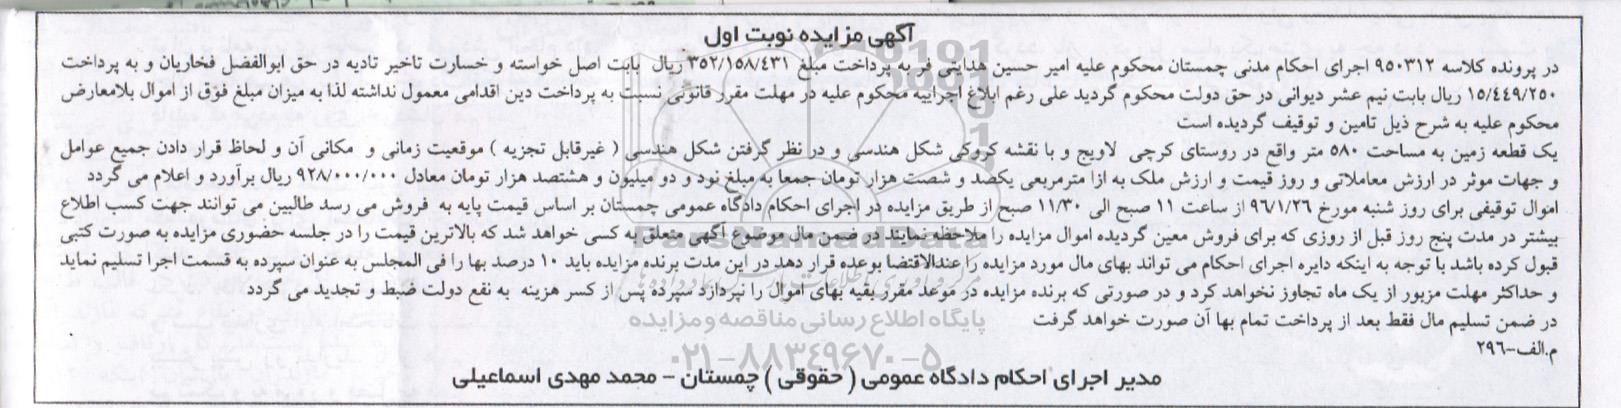 آگهی مزایده نوبت اول
در پرونده کلاسه ۹۵۰۳۱۲ اجرای احکام مدنی چمستان محکوم علیه امیر حسین هدایتی فر به پرداخت مبلغ ۳۵۲/۱۵۸/۴۳۱ ریال بابت اصل خواسته و خسارت تاخیر تادیه در حق ابوالفضل فخاریان و به پرداخت
۱۵/۴۴۹/۲۵۰ ریال بابت نیم عشر دیوانی در حق دولت محکوم گردید علی رغم ابلاغ اجراییه محکوم علیه در مهلت مقرر قانونی نسبت به پرداخت دین اقدامی معمول نداشته لذا به میزان مبلغ فوق از اموال بلامعارض
محکوم علیه به شرح ذیل تامین و توقیف گردیده است
یک قطعه زمین به مساحت ۵۸۰ متر واقع در روستای کرچی لاویج و با نقشه کروکی شکل هندسی و در نظر گرفتن شکل هندسی ( غیرقابل تجزیه ) موقعیت زمانی و مکانی آن و لحاظ قرار دادن جمیع عوامل
و جهات موثر در ارزش معاملاتی و روز قیمت و ارزش ملک به ازا مترمربعی یکصد و شصت هزار تومان جمعا به مبلغ نود و دو میلیون و هشتصد هزار تومان معادل ۹۲۸/۰۰۰/۰۰۰ ریال برآورد و اعلام می گردد
اموال توقیفی برای روز شنبه مورخ ۹۶/۱/۲۶ از ساعت ۱۱ صبح الی ۱۱/۳۰ صبح از طریق مزایده در اجرای احکام دادگاه عمومی چمستان بر اساس قیمت پایه به فروش می رسد طالبین می توانند جهت کسب اطلاع
بیشتر در مدت پنج روز قبل از روزی که برای فروش معین گردیده اموال مزایده را ملاحظه نمایند در ضمن مال موضوع آگهی متعلق به کسی خواهد شد که بالاترین قیمت را در جلسه حضوری مزایده به صورت کتبی
قبول کرده باشد با توجه به اینکه دایره اجرای احکام می تواند بهای مال مورد مزایده را عندالاقتضا بوعده قرار دهد در این مدت برنده مزایده باید ۱۰ درصد بها را فی المجلس به عنوان سپرده به قسمت اجرا تسلیم نماید
و حداکثر مهلت مزبور از یک ماه تجاوز نخواهد کرد و در صورتی که برنده مزایده در موعد مقرر بقیه بهای اموال را نپردازد سپرده پس از کسر هزینه به نفع دولت ضبط و تجدید می گردد
در ضمن تسلیم مال فقط بعد از پرداخت تمام بها آن صورت خواهد گرفت
پایگاه اطلاع رسانی مناقصه و مزایده
م.الف-۲۹۶
۰۲۱-۸۸۳۴۹۶۷۰-۵
مدیر اجرای احکام دادگاه عمومی ( حقوقی ) چمستان - محمد مهدی اسماعیلی